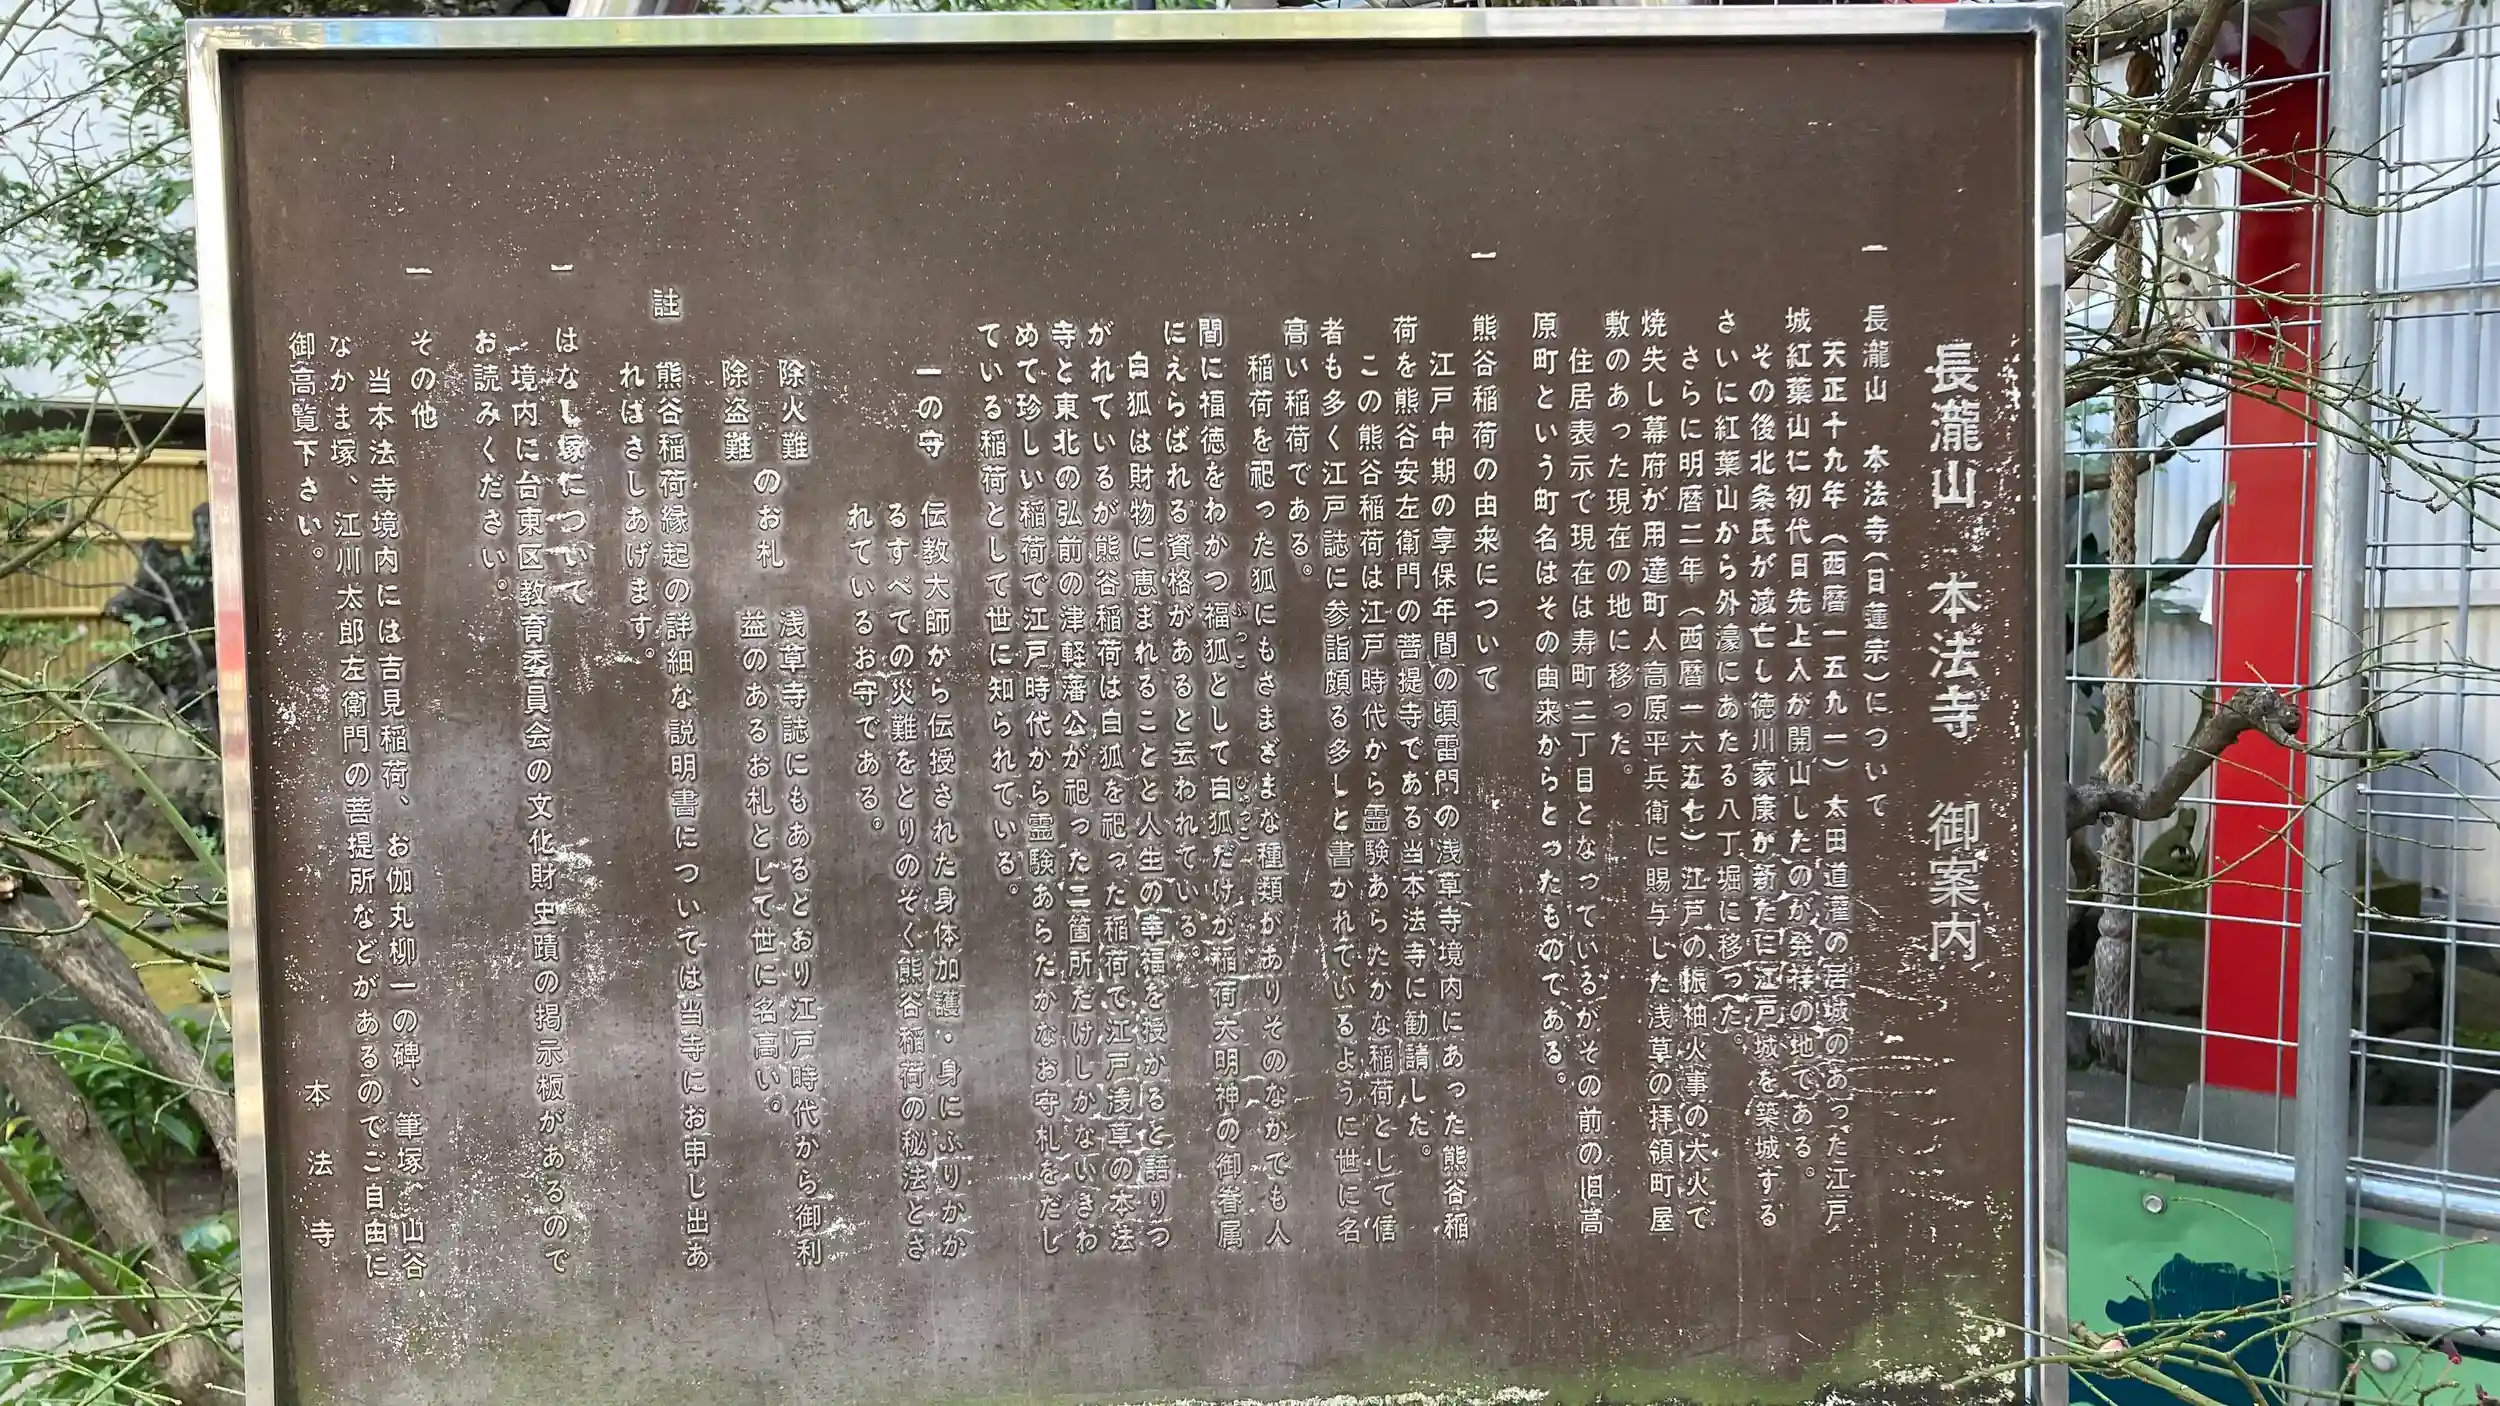 長瀧山 本法寺 御案内
一 長瀧山 本法寺(日蓮宗)について
天正十九年(西暦一五九一)太田道灌の居城のあった江戸
城紅葉山に初代日先上人が開山したのが発祥の地である。
その後北条氏が滅亡し徳川家康が新たに江戸城を築城する
さいに紅葉山から外濠にあたる八丁堀に移った。
さらに明暦二年(西暦一六五七)江戸の振袖火事の大火で
焼失し幕府が用達町人高原平兵衛に賜与した浅草の拝領町屋
敷のあった現在の地に移った。
住居表示で現在は寿町二丁目となっているがその前の旧高
原町という町名はその由来からとったものてある。
一 熊谷稲荷の由来について
江戸中期の享保年間の頃雷門の浅草寺境内にあった熊谷稲
荷を熊谷安左衛門の菩提寺である当本法寺に勧請した。
この熊谷稲荷は江戸時代から霊験あらたかな稲荷として信
者も多く江戸誌に参詣頗る多しと書かれているように世に名
高い稲荷である。
稲荷を祀った狐にもさまざまな種類がありそのなかでも人
間に福徳をわかつ福狐として白狐だけが稲荷大明神の御眷属
ふっこ びゃっこ
にえらばれる資格があると云われている。
白狐は財物に恵まれることと人生の幸福を授かると語りつ
がれているが熊谷稲荷は白狐を祀った稲荷で江戸浅草の本法
寺と東北の弘前の津軽藩公が祀った二箇所だけしかないきわ
めて珍しい稲荷で江戸時代から霊験あらたかなお守札をだし
ている稲荷として世に知られている。
一の守 伝教大師から伝授された身体加護・身にふりかか
るすべての災難をとりのぞく熊谷稲荷の秘法とさ
れているお守である。
除火難
除盗難
のお札
浅草寺誌にもあるとおり江戸時代から御利
益のあるお札として世に名高い。
註 熊谷稲荷縁起の詳細な説明書については当寺にお申し出あ
ればさしあげます。
一 はなし塚について
境内に台東区教育委員会の文化財史蹟の掲示板があるので
お読みください。
一 その他
当本法寺境内には吉見稲荷、お伽丸柳一の碑、筆塚、山谷
なかま塚、江川太郎左衛門の菩提所などがあるのでご自由に
御高覧下さい。
本法寺